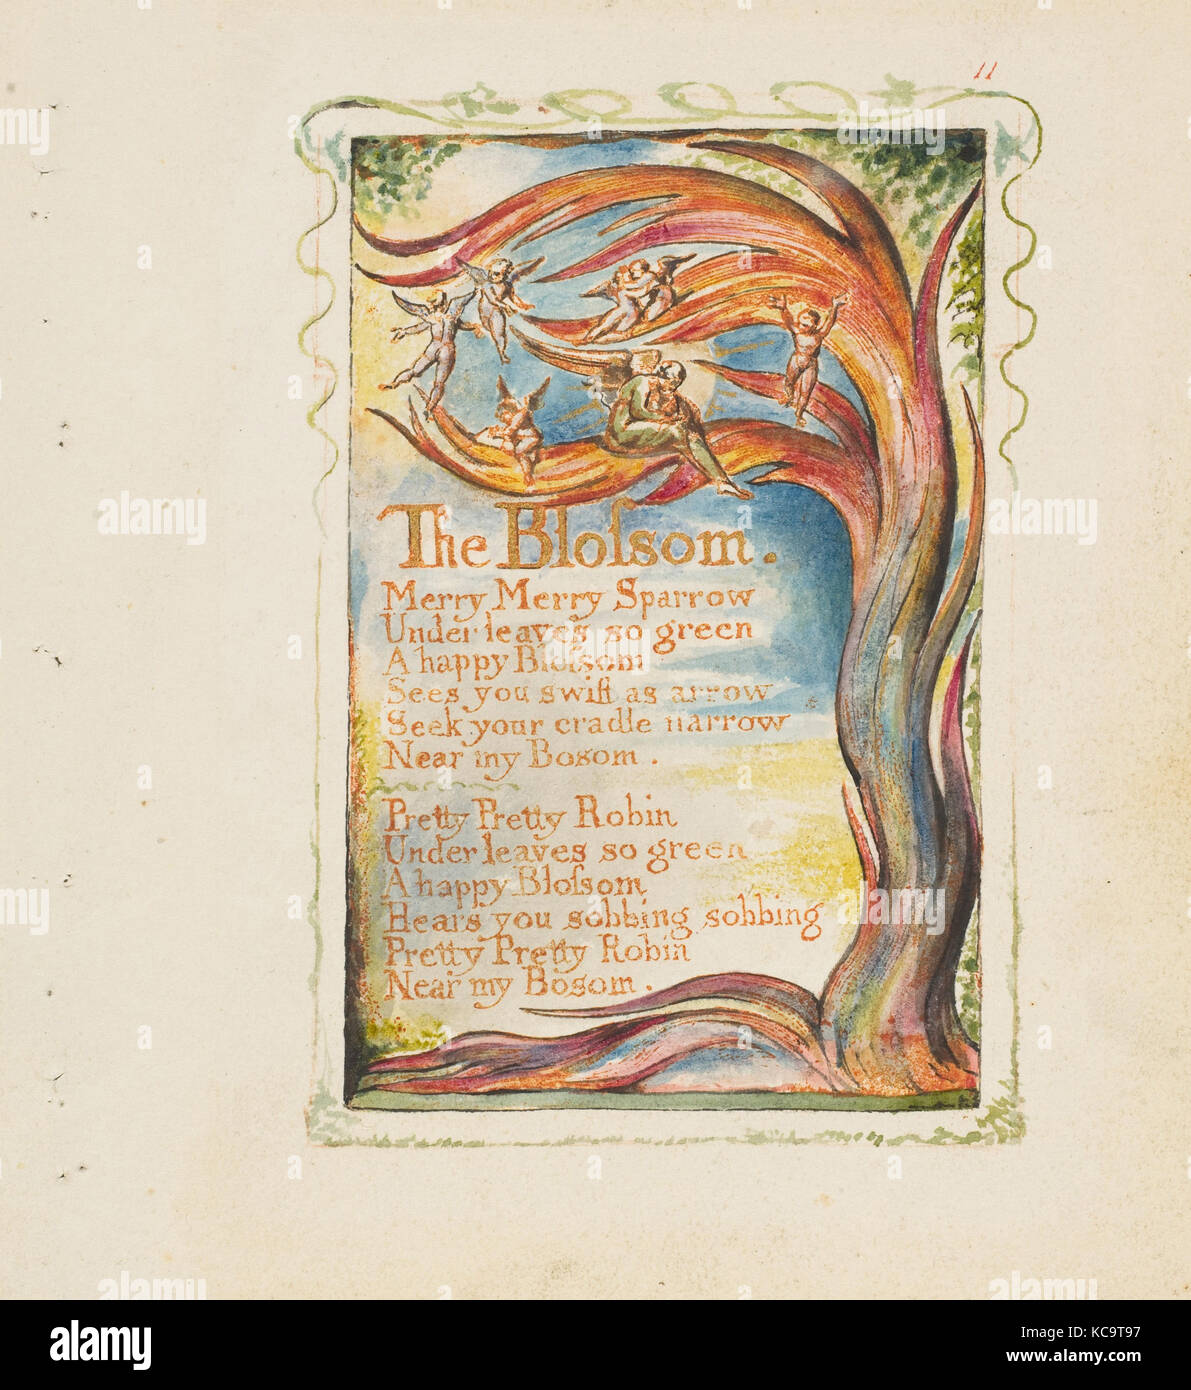 11
The Bloſsom.
Merry Merry Sparrow
Under leaves so green
A happy Bloſsom
Sees you swift as arrow
Seek your cradle narrow
Near my Bosom.
Pretty Pretty Robin
Under leaves so green
A happy Bloſsom
Hears you sobbing sobbing
Pretty Pretty Robin
Near my Bosom.
alamy
Image ID: KC9T97
www.alamy.com